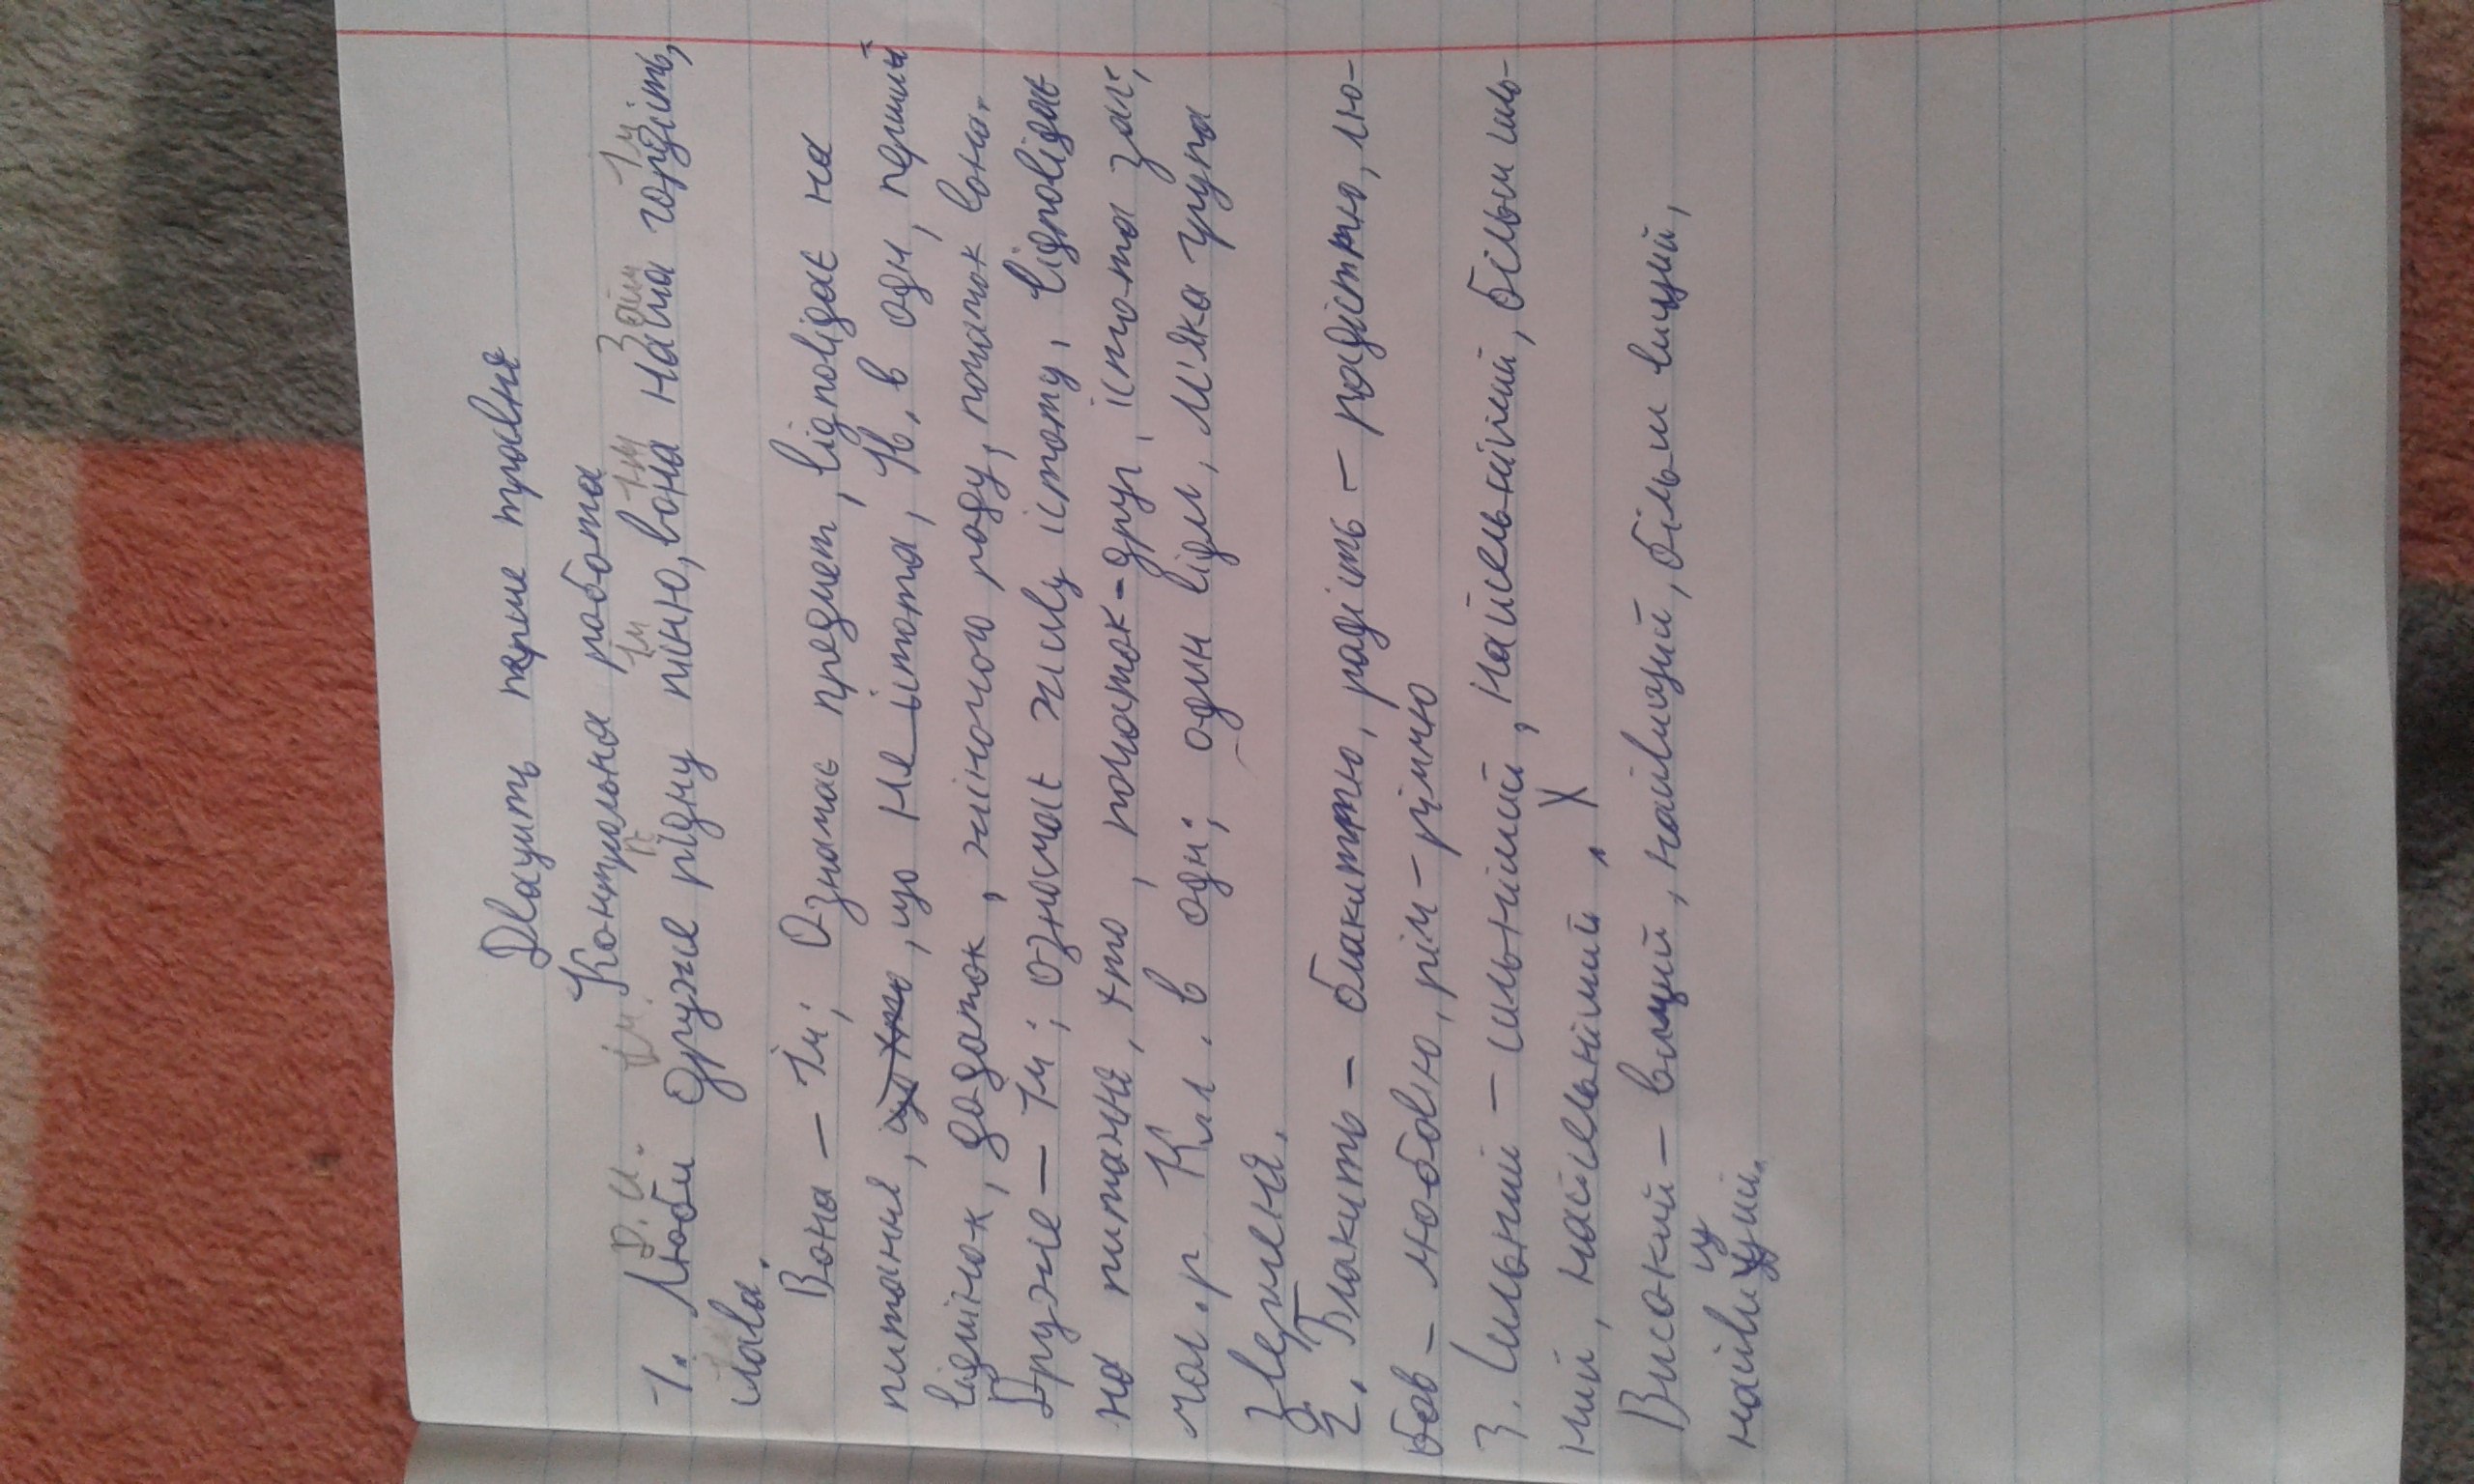 Двацить перше травня
Контрольна работа
1. Люби друже рідну пісню, вона наша гордість,
слава.
Вона – Ім; Означає предмет, відповідає на
питання, що не істота, Н. в одн, перший
відмінок, додаток, жіночого роду, початок вона.
Друже – Ім; означає живу істоту, відповідає
на питання, хто, початок - друг, істота заг;
чол. р Кл. в одн; один відм, М'яка група
звертння.
2. Блакить – блакиттю, радість – радістю, лю-
бов – любовію, річ – річчю
3. Сильний – сильніший, найсильніший, більш силь-
ний, найсильніший.
Високий – вищий, найвищий, більш вищий,
найвищий.